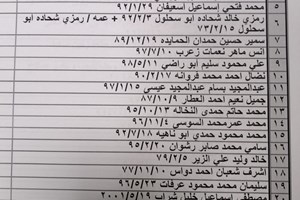 محمد فتحي إسماعيل اسعيفان ٩٢/١/٢٩ ٥
رمزي خالد شحاده ابو سحلول ٩٢/٢/٣ + عمه / رمزي شحاده ابو سحلول ٧٣/٢/١٥ ٦
سمير حسين حمدان الحمايده ٨٩/١٢/١٩ ٧
انس ماهر نعمات زعرب ٩٧/٧/١٠ ٨
علي محمود سليم ابو رياض ٩٨/٥/١١ ٩
نضال احمد محمد فروانه ٩٠/٢/١٧ ١٠
عبدالمجيد بسام عبدالمجيد عيسى ٩٧/١/١٥ ١١
جميل نعيم احمد العطار ٨٧/١٠/٩ ١٢
محمد حاتم حمدي النخاله ٩٥/١/٥ ١٣
محمد عمرمحمد السوسي ٩٦/١١/٤ ١٤
محمد محمود حمدي ابو ناهيه ٩٢/٧/١٨ ١٥
سامي محمد صابر رشوان ٩٥/٢/٢٠ ١٦
خالد وليد علي الزير ٧٩/٢/٥ ١٧
اشرف شعبان احمد دواس ٧٧/٨/١١ ١٨
سليمان محمد محمود عرفات ٩٦/٥/٢٣ ١٩
مصطفى إسماعيل خليل شراب ٢٠٠١/٥/١٩ ٢٠